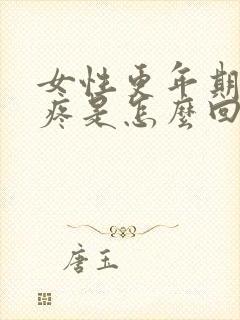 女性更年期
疼是怎麼回
唐玉